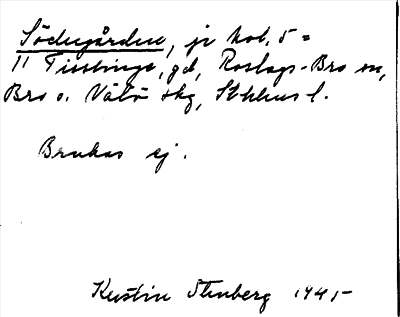 Södergården, jr kol. 5 =
11 Tisslinge, gd, Roslags-Bro sn,
Bro o. Vätö skg, Sthlms l.
Brukas ej.
Kerstin Stenberg 1945